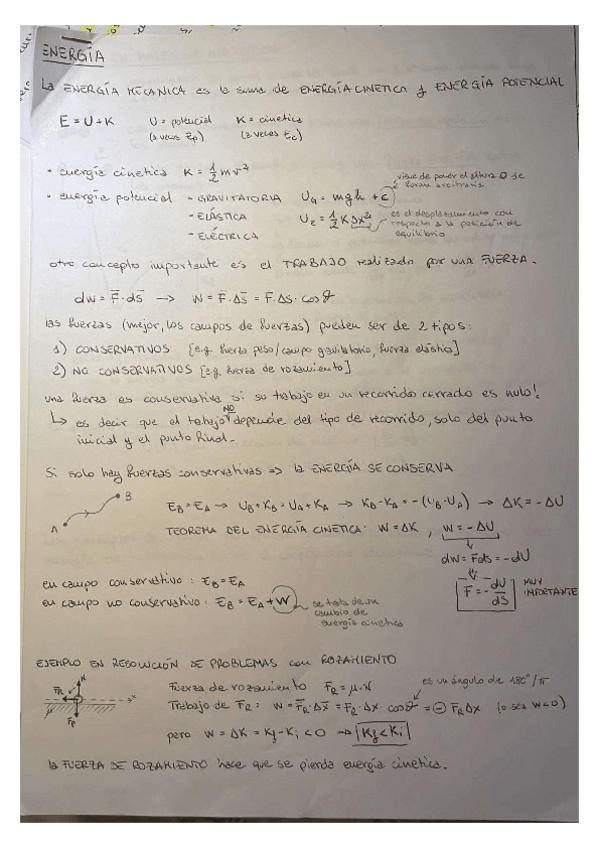 ENERGÍA
La ENERGÍA MECANICA es la suma de ENERGÍA CINETICA y ENERGÍA POTENCIAL
E = U + K U = potencial K = cinetica
(a veces Ep) (a veces Ec)
• energía cinetica K = 1/2 mv²
viene de poner el altura 0 de
forma arbitraria
• energía potencial - GRAVITATORIA U_G = mgh + c
- ELÁSTICA U_E = 1/2 K Δx²
es el desplazamiento con
respecto a la posición de
equilibrio
- ELÉCTRICA
otro concepto importante es el TRABAJO realizado por una FUERZA.
dW = F̄·ds̄ → W = F̄·Δs̄ = F·Δs·cosϑ
las fuerzas (mejor, los campos de fuerzas) pueden ser de 2 tipos:
1) CONSERVATIVOS [e.g. fuerza peso/campo gravitatorio, fuerza elástica]
2) NO CONSERVATIVOS [e.g. fuerza de rozamiento]
una fuerza es conservativa si su trabajo en un recorrido cerrado es nulo!
↳ es decir que el trabajo NO depende del tipo de recorrido, solo del punto
inicial y el punto final.
Si solo hay fuerzas conservativas => la ENERGÍA SE CONSERVA
A B
E_B = E_A → U_B + K_B = U_A + K_A → K_B - K_A = -(U_B - U_A) → ΔK = -ΔU
TEOREMA DEL ENERGÍA CINETICA: W = ΔK, W = -ΔU
dW = Fds = -dU
F̄ = -dU/ds̄ MUY IMPORTANTE
en campo conservativo: E_B = E_A
en campo no conservativo: E_B = E_A + W
se trata de un
cambio de
energía cinetica
EJEMPLO EN RESOLUCIÓN DE PROBLEMAS con ROZAMIENTO
N F_R F_P x μ
Fuerza de rozamiento F_R = μ·N
es un ángulo de 180°/π
Trabajo de F_R: W = F̄_R·Δx̄ = F_R·Δx·cosϑ = ⊖ F_R Δx (o sea W<0)
pero W = ΔK = K_f - K_i < 0 → K_f < K_i
la FUERZA DE ROZAMIENTO hace que se pierda energía cinetica.